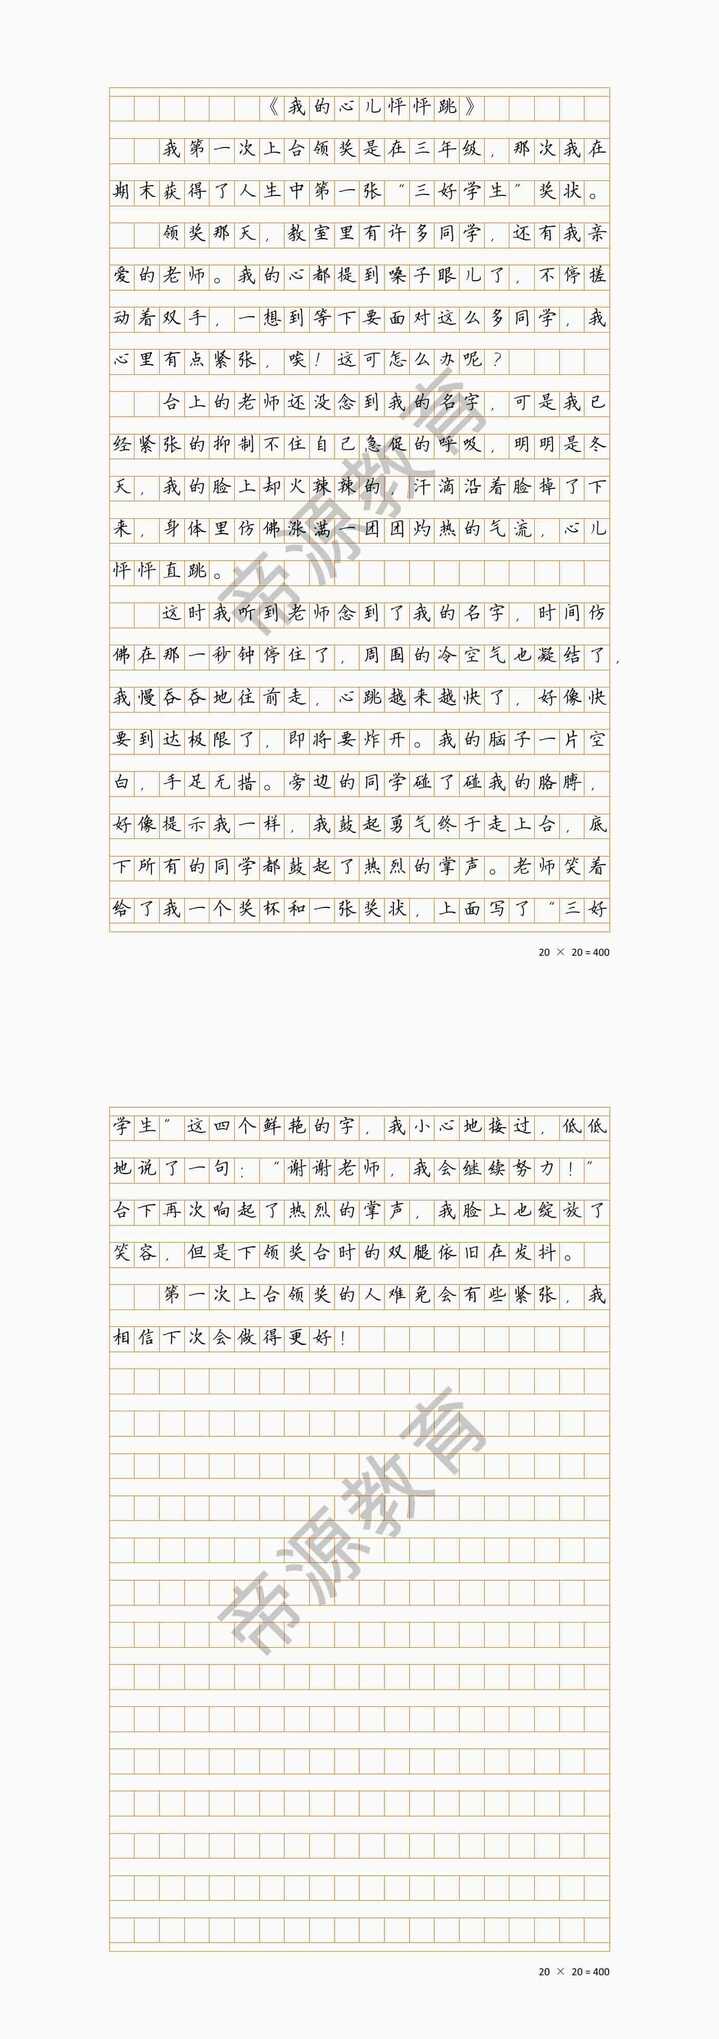 《我的心儿怦怦跳》
我第一次上台领奖是在三年级，那次我在
期末获得了人生中第一张“三好学生”奖状。
领奖那天，教室里有许多同学，还有我亲
爱的老师。我的心都提到嗓子眼儿了，不停搓
动着双手，一想到等下要面对这么多同学，我
心里有点紧张，唉！这可怎么办呢？
台上的老师还没念到我的名字，可是我已
经紧张的抑制不住自己急促的呼吸，明明是冬
天，我的脸上却火辣辣的，汗滴沿着脸掉了下
来，身体里仿佛涨满一团团灼热的气流，心儿
怦怦直跳。
这时我听到老师念到了我的名字，时间仿
佛在那一秒钟停住了，周围的冷空气也凝结了，
我慢吞吞地往前走，心跳越来越快了，好像快
要到达极限了，即将要炸开。我的脑子一片空
白，手足无措。旁边的同学碰了碰我的胳膊，
好像提示我一样，我鼓起勇气终于走上台，底
下所有的同学都鼓起了热烈的掌声。老师笑着
给了我一个奖杯和一张奖状，上面写了“三好
20 × 20=400
学生”这四个鲜艳的字，我小心地接过，低低
地说了一句：“谢谢老师，我会继续努力！”
台下再次响起了热烈的掌声，我脸上也绽放了
笑容，但是下领奖台时的双腿依旧在发抖。
第一次上台领奖的人难免会有些紧张，我
相信下次会做得更好！
20 × 20=400
帝源教育
帝源教育